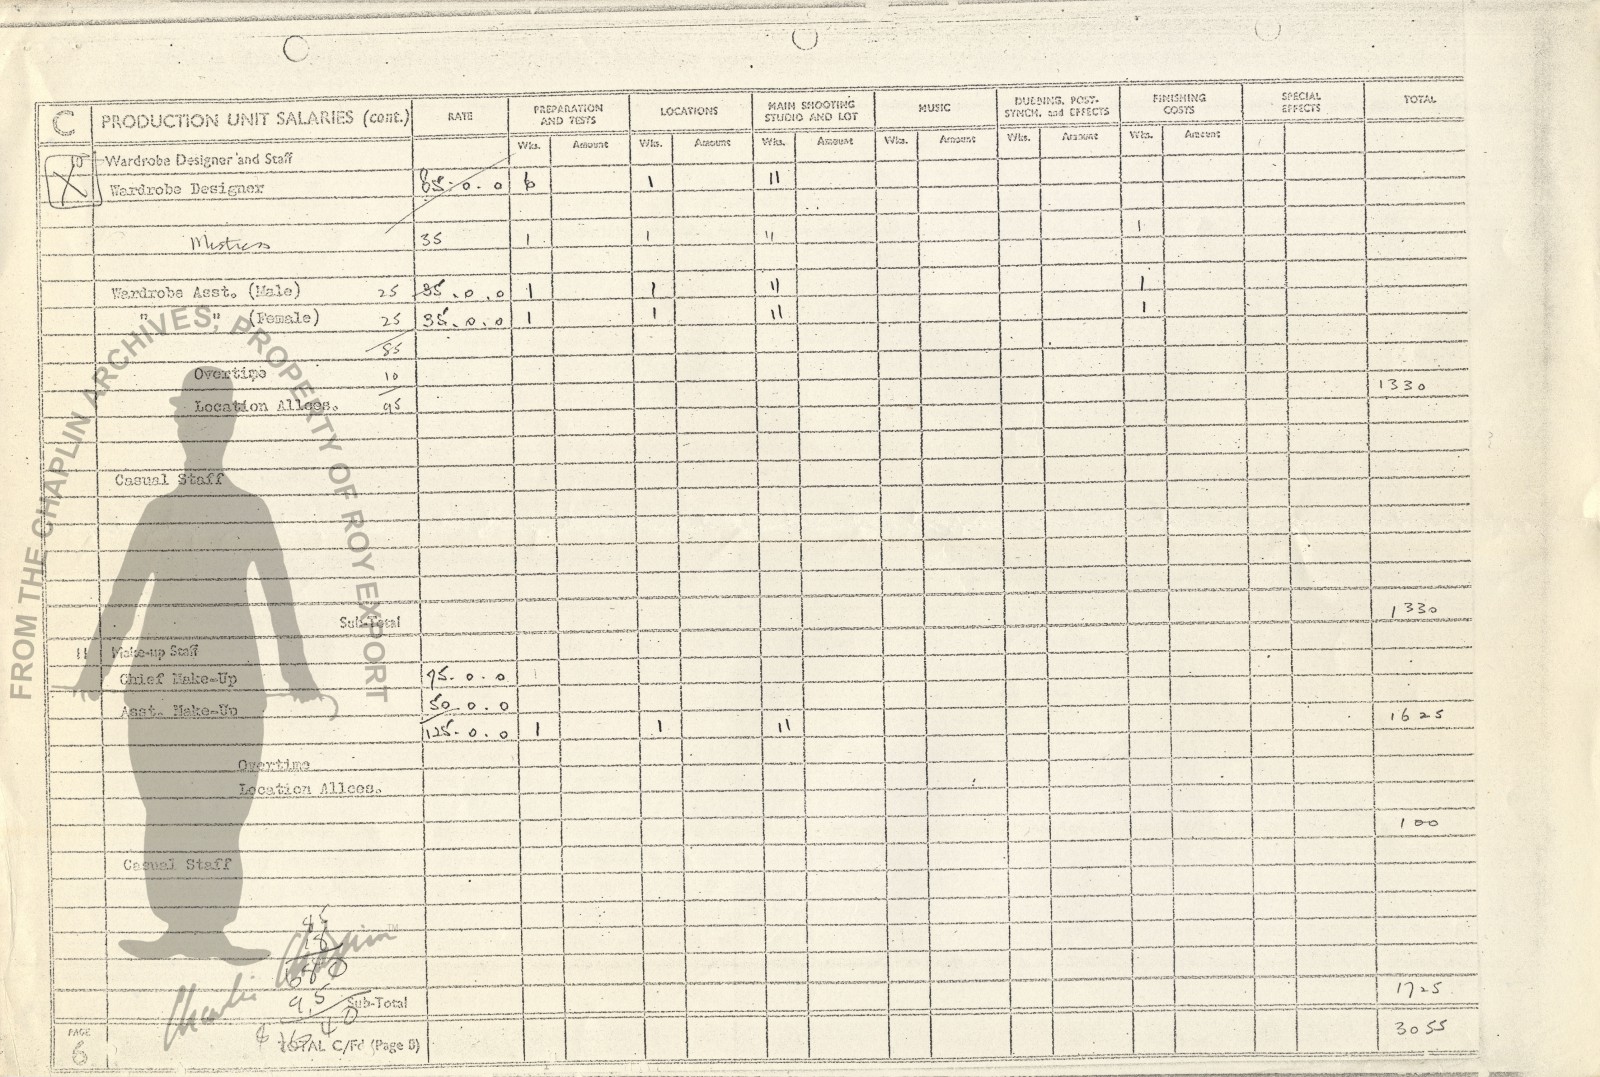 C PRODUCTION UNIT SALARIES (cont.) RATE PREPARATION AND TESTS LOCATIONS MAIN SHOOTING STUDIO AND LOT MUSIC DUBBING, POST-SYNCH. and EFFECTS FINISHING COSTS SPECIAL EFFECTS TOTAL
Wks. Amount Wks. Amount Wks. Amount Wks. Amount Wks. Amount Wks. Amount
10 Wardrobe Designer and Staff
X Wardrobe Designer 65.0.0 6 1 11
Mistress 35 1 1 11 1
Wardrobe Asst. (Male) 25 35.0.0 1 1 11 1
" " (Female) 25 35.0.0 1 1 11 1
85
Overtime 10 1330
Location Allces. 95
Casual Staff
Sub-Total 1330
11 Make-up Staff
Chief Make-Up 75.0.0
Asst. Make-Up 50.0.0 1625
125.0.0 1 1 11
Overtime
Location Allces.
100
Casual Staff
95
Sub-Total 1725
PAGE 6 TOTAL C/Fd (Page 8) 3055
FROM THE CHAPLIN ARCHIVES, PROPERTY OF ROY EXPORT
Charlie Chaplin